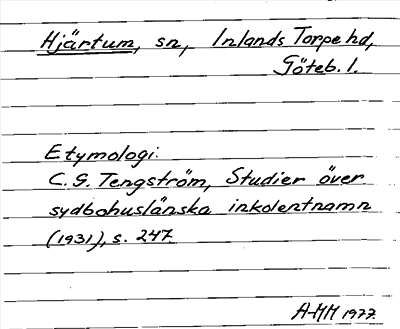 Hjärtum, sn, Inlands Torpe hd,
Göteb. l.
Etymologi.
C. G. Tengström, Studier över
sydbohuslänska inkolentnamn
(1931), s. 247
A-HH 1977